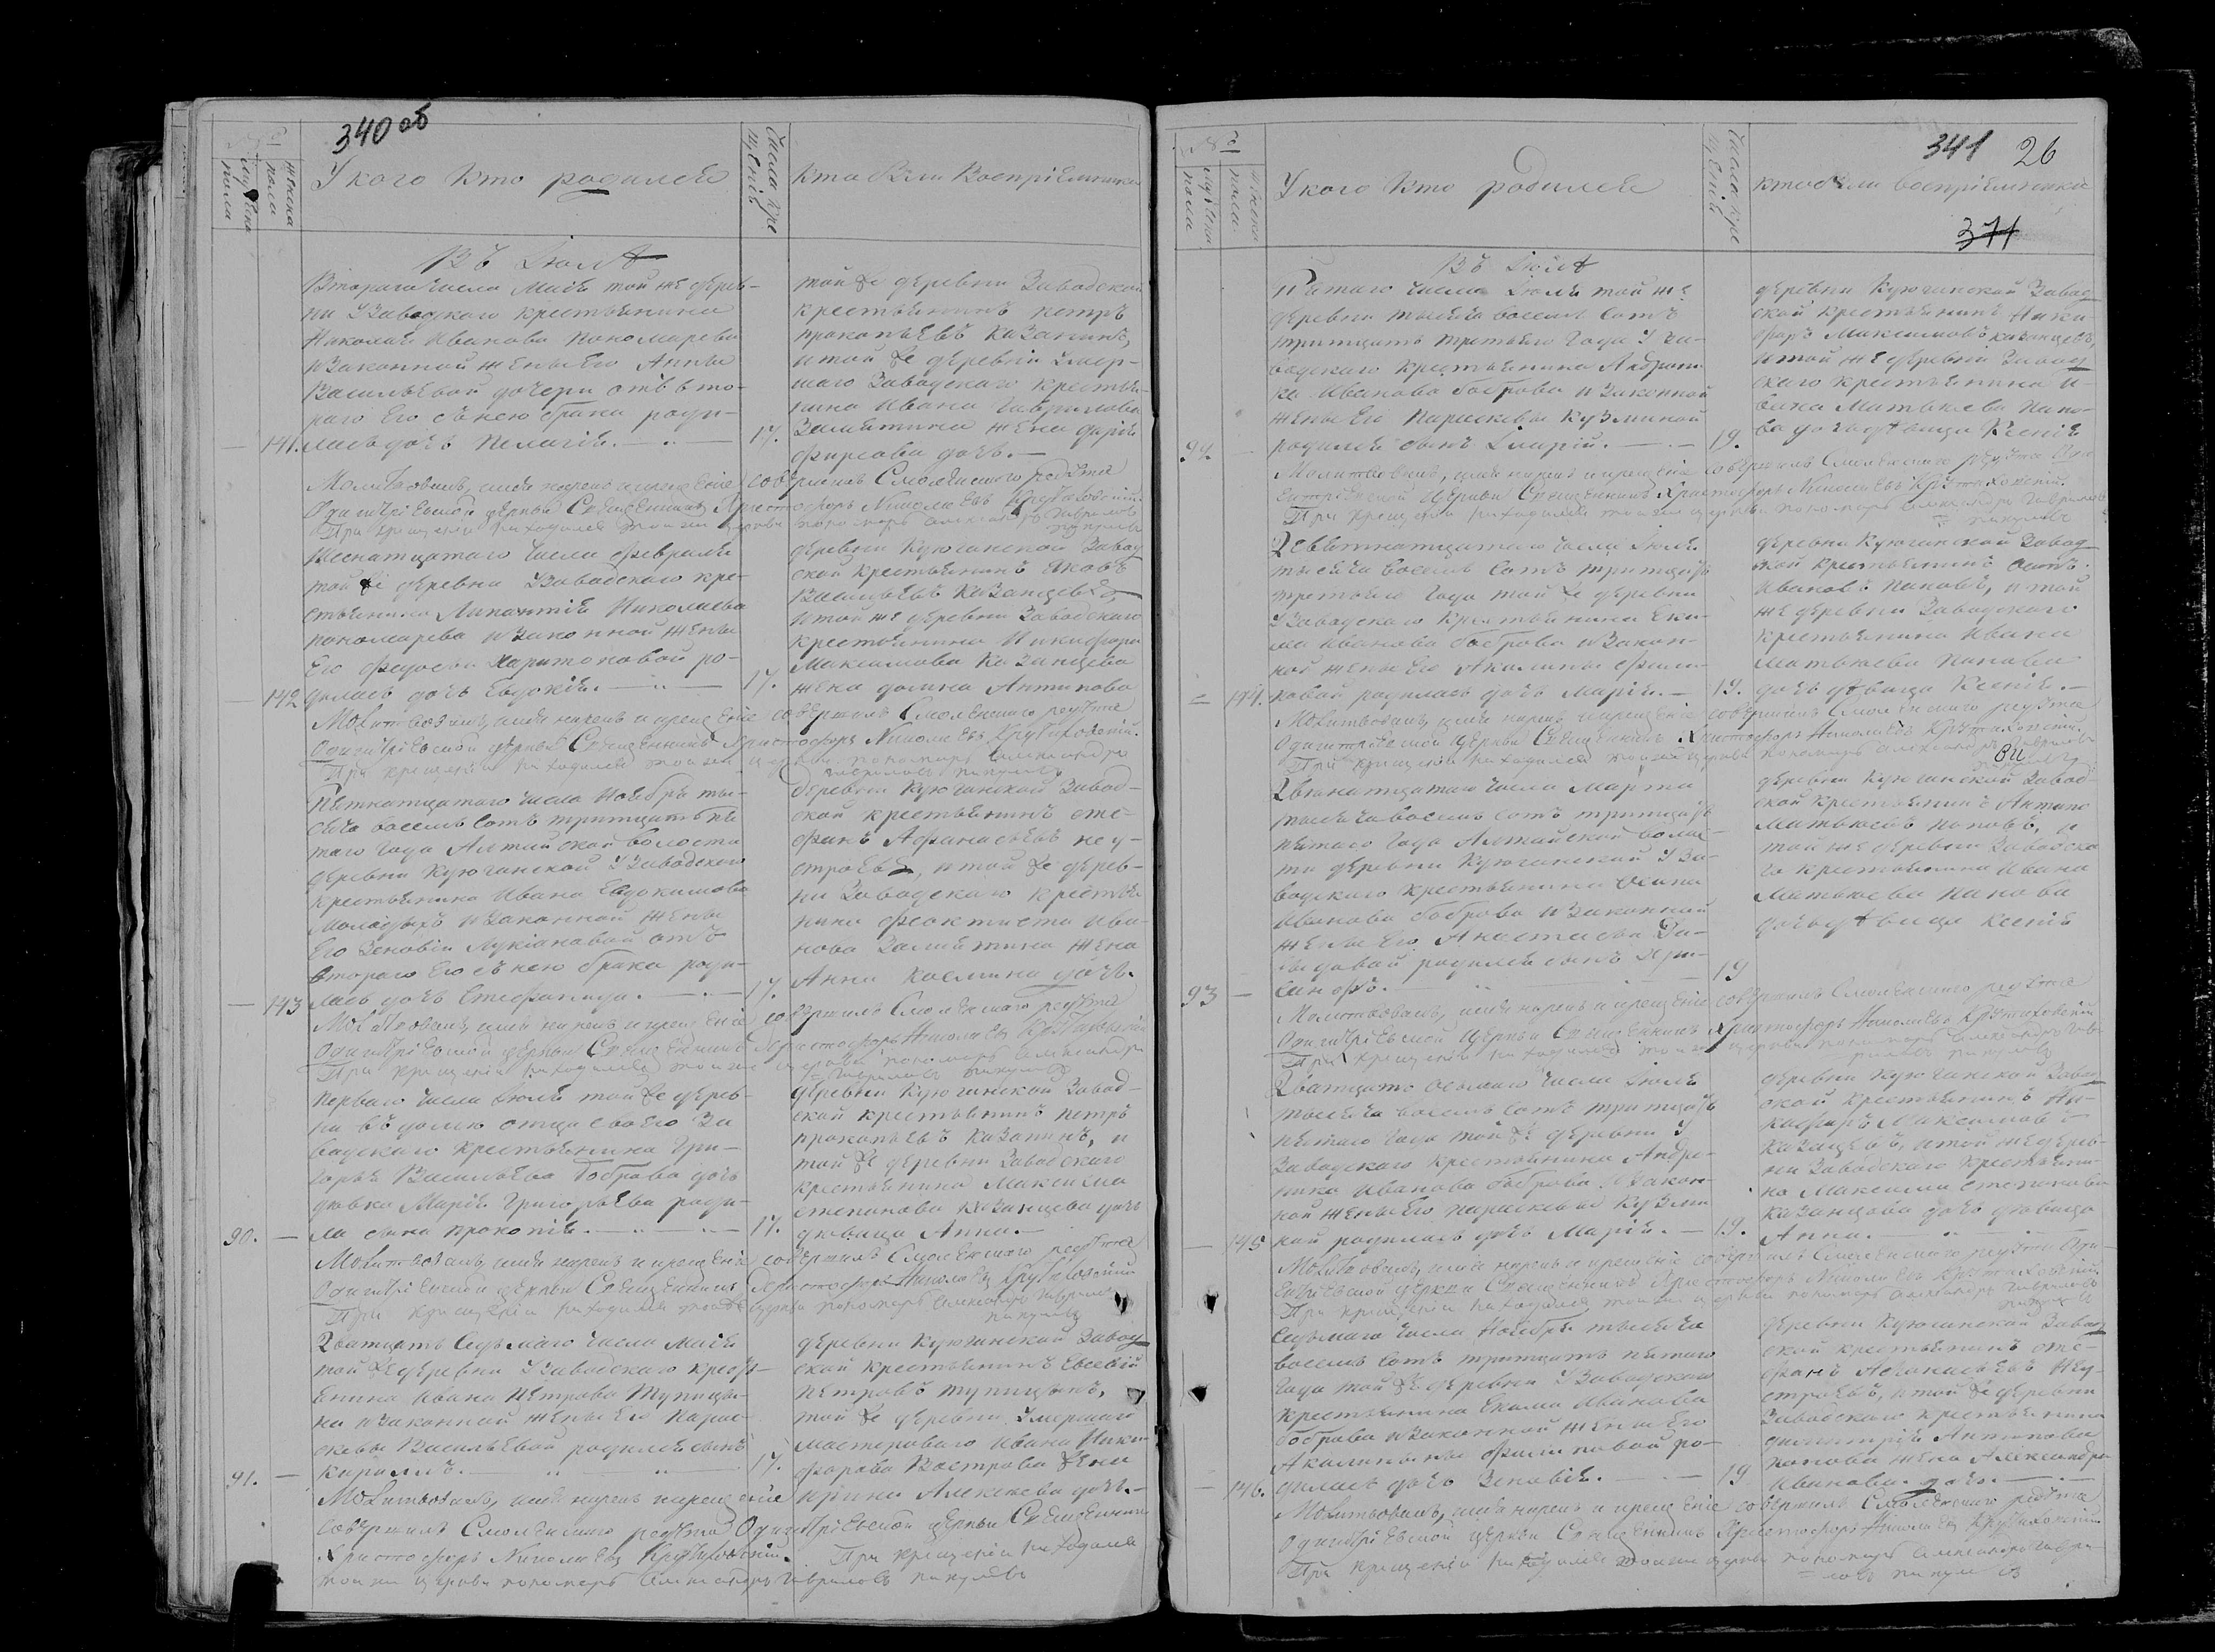 340 об
№
Мужеска пола
Женска пола
У кого кто родился
Числа Крещенія
Кто были Воспріемники
Въ Іюлѣ
Втораго числа Маія той же дерев-
ни У Заводскаго крестьянина
Николая Иванова Пономарева
и Законной жены Его Анны
Васильевой дочери отъ вто-
раго Его съ нею брака роди-
141. лась дочь Пелагія. 17.
той же деревни Заводской
крестьянинъ Петръ
Прокопьевъ Казанинъ,
и той же деревни Умер-
шаго Заводскаго крестья-
нина Ивана Гаврилова
Замятина жена Дарія
Фирсова дочь.
Молитвовалъ, имя нарекъ и крещеніе совершилъ Смоленскаго редута
Одигитріевской церкви Священникъ Христофоръ Николаевъ Крутиховскій.
При крещеніи находился тоя же церкви пономарь Александръ Гавриловъ
Пикулевъ
Шеснатцатаго числа Февраля
той же деревни У Заводскаго кре-
стьянина Николаева
Пономарева и Законной жены
Его Федосьи Харитоновой ро-
142 дилась дочь Евдокія. 17.
деревни Куюганской Завод
ской крестьянинъ Яковъ
Васильевъ Казанцевъ
и той же деревни Заводскаго
крестьянина Никифора
Максимова Казанцева
жена Домна Антипова
Молитвовалъ, имя нарекъ и крещеніе совершилъ Смоленскаго редута
Одигитріевской церкви Священникъ Христофоръ Николаевъ Крутиховскій.
При крещеніи находился тоя же церкви пономарь Александръ
Гавриловъ Пикулевъ
Пятнатцатаго числа Ноября ты-
сяча восемь сотъ тритцать пя
таго года Алтайской волости
деревни Куюганской У Заводскаго
крестьянина Ивана Евдокимова
Молодыхъ и Законной жены
Его Зеновіи Лукіановой отъ
втораго Его съ нею брака роди-
143 лась дочь Стефанида. 17.
деревни Куюганской Завод-
ской крестьянинъ Сте-
фанъ Афанасьевъ Неу-
строевъ, и той же дерев-
ни Заводскаго крестья
нина Феоктиста Ива-
нова Замятина жена
Анна Космина дочь.
Молитвовалъ, имя нарекъ и крещеніе совершилъ Смоленскаго редута
Одигитріевской церкви Священникъ Христофоръ Николаевъ Крутиховскій
При крещеніи находился тоя же церкви пономарь Александръ
Гавриловъ Пикулевъ
Перваго числа Іюля той же дерев-
ни въ домѣ отца своего За
водскаго крестьянина Гри-
горья Васильева Боброва дочь
дѣвка Марія Григорьева роди-
90. ла сына Прокопія. 17.
деревни Куюганской Завод-
ской крестьянинъ Петръ
Прокопьевъ Казанинъ, и
той же деревни Заводскаго
крестьянина Максима
Степанова Казанцева дочь
дѣвица Анна.
Молитвовалъ, имя нарекъ и крещеніе совершилъ Смоленскаго редута
Одигитріевской церкви Священникъ Христофоръ Николаевъ Крутиховскій
При крещеніи находился тоя же церкви пономарь Александръ Гавриловъ
Пикулевъ
Дватцать Седьмаго числа Маія
той же деревни У Заводскаго кресть-
янина Ивана Петрова Тупицы-
на и Законной жены Его Парас-
кевы Васильевой родился сынъ
91. Кириллъ. 17.
деревни Куюганской Завод
ской крестьянинъ Евсевій
Петровъ Тупицынъ,
той же деревни Умершаго
мастероваго Ивана Ники-
форова Вострова жена
Ирина Алексѣева дочь.
Молитвовалъ, имя нарекъ и крещеніе
совершилъ Смоленскаго редута Одигитріевской церкви Священникъ
Христофоръ Николаевъ Крутиховскій. При крещеніи находился
тоя же церкви пономарь Александръ Гавриловъ Пикулевъ
341 26
371
№
Мужеска пола
Женска пола
У кого кто родился
Числа Крещенія
кто были воспріемники
Въ Іюлѣ
Пятаго числа Іюля той же
деревни тысяча восемь сотъ
тритцать третьяго года У За-
водскаго крестьянина Андрони-
ка Иванова Боброва и Законной
жены Его Параскевы Кузминой
92. родился сынъ Іларій. 19.
деревни Куюганской Завод
ской крестьянинъ Ники-
форъ Максимовъ Казанцевъ,
и той же деревни Завод
скаго крестьянина И-
вана Матвѣева Попо-
ва дочь дѣвица Ксенія
Молитвовалъ, имя нарекъ и крещеніе совершилъ Смоленскаго редута Оди
гитріевской церкви Священникъ Христофоръ Николаевъ Крутиховскій.
При крещеніи находился тоя же церкви пономарь Александръ Гавриловъ
Пикулевъ
Девятнатцатаго числа Іюля
тысяча восемь сотъ тритцать
третьяго года той же деревни
У Заводскаго крестьянина Еки-
ма Иванова Боброва и Закон-
ной жены Его Акилины Фили-
144. повой родилась дочь Марія. 19.
деревни Куюганской Завод
ской крестьянинъ
Ивановъ Поповъ, и той
же деревни Заводскаго
крестьянина Ивана
Матвѣева Попова
дочь дѣвица Ксенія.
Молитвовалъ, имя нарекъ и крещеніе совершилъ Смоленскаго редута
Одигитріевской церкви Священникъ Христофоръ Николаевъ Крутиховскій.
При крещеніи находился тоя же церкви пономарь Александръ Гавриловъ
Двенатцатаго числа Марта
тысяча восемь сотъ тритцать
пятаго года Алтайской волос-
ти деревни Куюганской У За-
водскаго крестьянина Осипа
Иванова Боброва и Законной
жены Его Анастасьи Да-
выдовой родился сынъ Хри-
93 санфъ. 19
деревни Куюганской Завод-
ской крестьянинъ Антипъ
Матвѣевъ Поповъ, и
той же деревни Заводска
го крестьянина Ивана
Матвѣева Попова
дочь дѣвица Ксенія
Молитвовалъ, имя нарекъ и крещеніе совершилъ Смоленскаго редута
Одигитріевской церкви Священникъ Христофоръ Николаевъ Крутиховскій
При крещеніи находился тоя же церкви пономарь Александръ Гав-
риловъ Пикулевъ
Дватцать осьмаго числа Іюля
тысяча восемь сотъ тритцать
пятаго года той же деревни У
Заводскаго крестьянина Андро-
ника Иванова Боброва и Закон-
ной жены Его Параскевы Кузми
145 ной родилась дочь Марія. 19.
деревни Куюганской Завод
ской крестьянинъ Ни-
кифоръ Максимовъ
Казанцевъ, и той же дерев-
ни Заводскаго крестьяни-
на Максима Степанова
Казанцова дочь дѣвица
Анна.
Молитвовалъ, имя нарекъ и крещеніе совершилъ Смоленскаго редута Оди-
гитріевской церкви Священникъ Христофоръ Николаевъ Крутиховскій
При крещеніи находился тоя же церкви пономарь Александръ Гавриловъ
Пикулевъ
Седьмаго числа Ноября тысяча
восемь сотъ тритцать пятаго
года той же деревни У Заводскаго
крестьянина Екима Иванова
Боброва и Законной жены Его
Акилины Филиповой ро-
146. дилась дочь Зеновія. 19
деревни Куюганской Завод
ской крестьянинъ Сте-
фанъ Афанасьевъ Неу-
строевъ, и той же деревни
Заводскаго крестьянина
Димитрія Антипова
Попова жена Александра
Иванова дочь.
Молитвовалъ, имя нарекъ и крещеніе совершилъ Смоленскаго редута
Одигитріевской церкви Священникъ Христофоръ Николаевъ Крутиховскій
При крещеніи находился тоя же церкви пономарь Александръ Гаври-
ловъ Пикулевъ